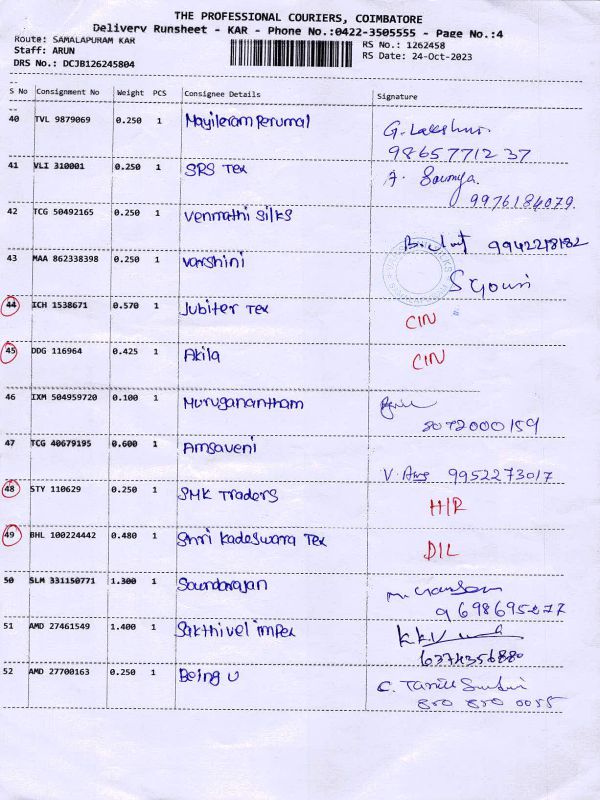 THE PROFESSIONAL COURIERS, COIMBATORE
Delivery Runsheet - KAR - Phone No.:0422-3505555 - Page No.:4
Route: SAMALAPURAM KAR RS No.: 1262458
Staff: ARUN RS Date: 24-Oct-2023
DRS No.: DCJB126245804
S No Consignment No Weight PCS Consignee Details Signature
40 TVL 9879069 0.250 1 Mayileram Perumal G. Lakshmi.
9865771237
41 VLI 310001 0.250 1 SRS Tex A. Sowmya.
9976184079.
42 TCG 50492165 0.250 1 Venmathi Silks
9942218182
43 MAA 862338398 0.250 1 Varshini S Gowri
44 ICH 1538671 0.570 1 Jubiter Tex CIN
45 DDG 116964 0.425 1 Akila CIN
46 IXM 504959720 0.100 1 Muruganantham
8072000159
47 TCG 40679195 0.600 1 Amsaveni
V. Ams 9952273017
48 STY 110629 0.250 1 SMK Traders H/R
49 BHL 100224442 0.480 1 Shri Kadeswara Tex D/L
50 SLM 331150771 1.300 1 Soundarajan
51 AMD 27461549 1.400 1 Sakthivel impex
6374356880
52 AMD 27700163 0.250 1 Being U
850 850 0055